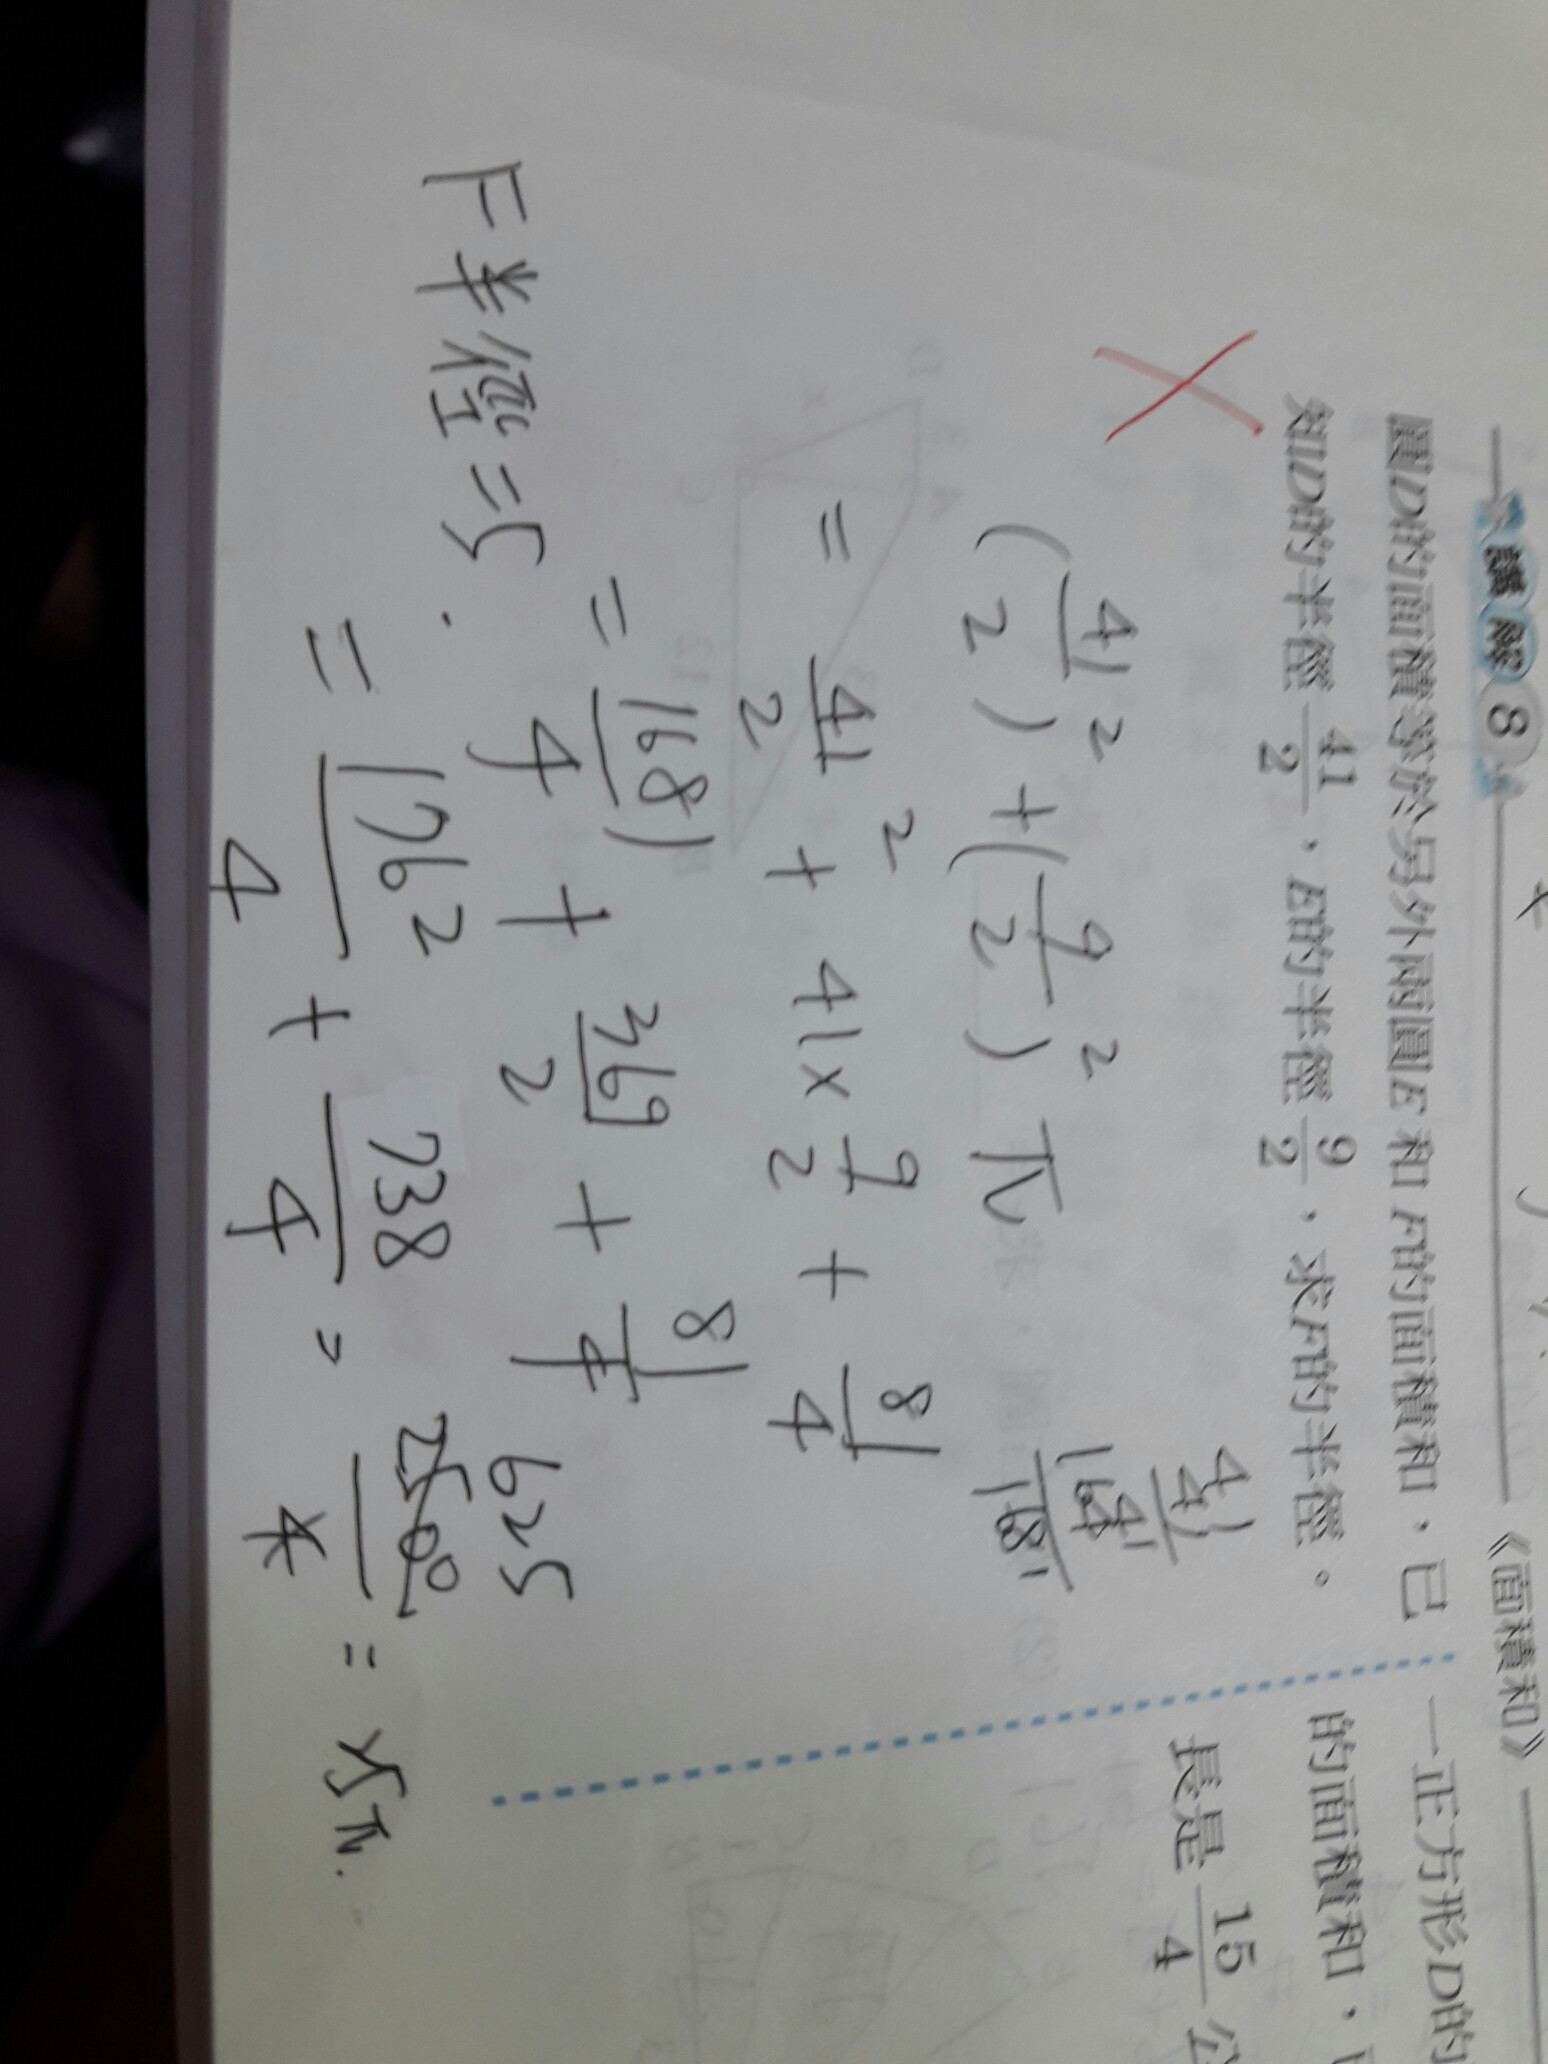 講解8 《面積和》
圓D的面積等於另外兩圓E和F的面積和,已
知D的半徑41/2,E的半徑9/2,求F的半徑。
(41/2)² + (9/2)² π
= 41/2 ² + 41 × 9/2 + 81/4
= 1681/4 + 369/2 + 81/4
= 1762/4 + 738/4 = 2500/4 = 25π.
625
F半徑=5.
41
41
41
164
1681
一正方形D的
的面積和,
長是15/4公